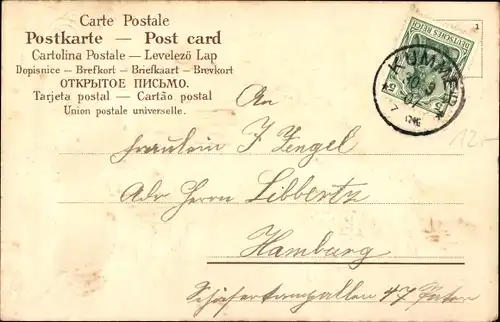 Carte Postale
Postkarte — Post card
Cartolina Postale — Levelező Lap
Dopisnice — Brefkort — Briefkaart — Brevkort
ОТКРЫТОЕ ПИСЬМО.
Tarjeta postal — Cartão postal
Union postale universelle.
DEUTSCHES REICH
KUMMER
An
Fräulein J Zengel
Adr Herrn Libbertz
Hamburg
47
12.-